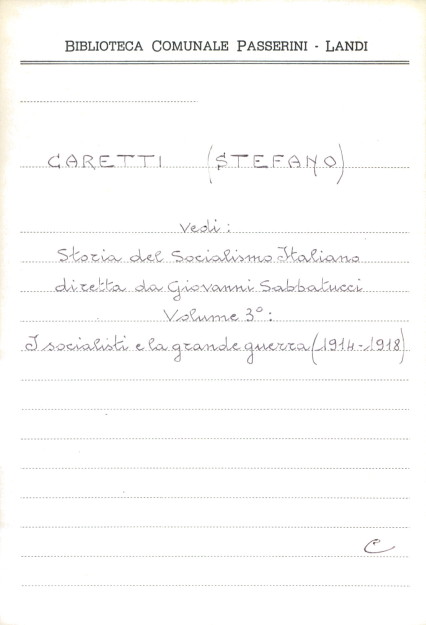 BIBLIOTECA COMUNALE PASSERINI - LANDI
CARETTI (STEFANO)
Vedi:
Storia del Socialismo Italiano
diretta da Giovanni Sabbatucci
Volume 3°:
I socialisti e la grande guerra (1914-1918)
C